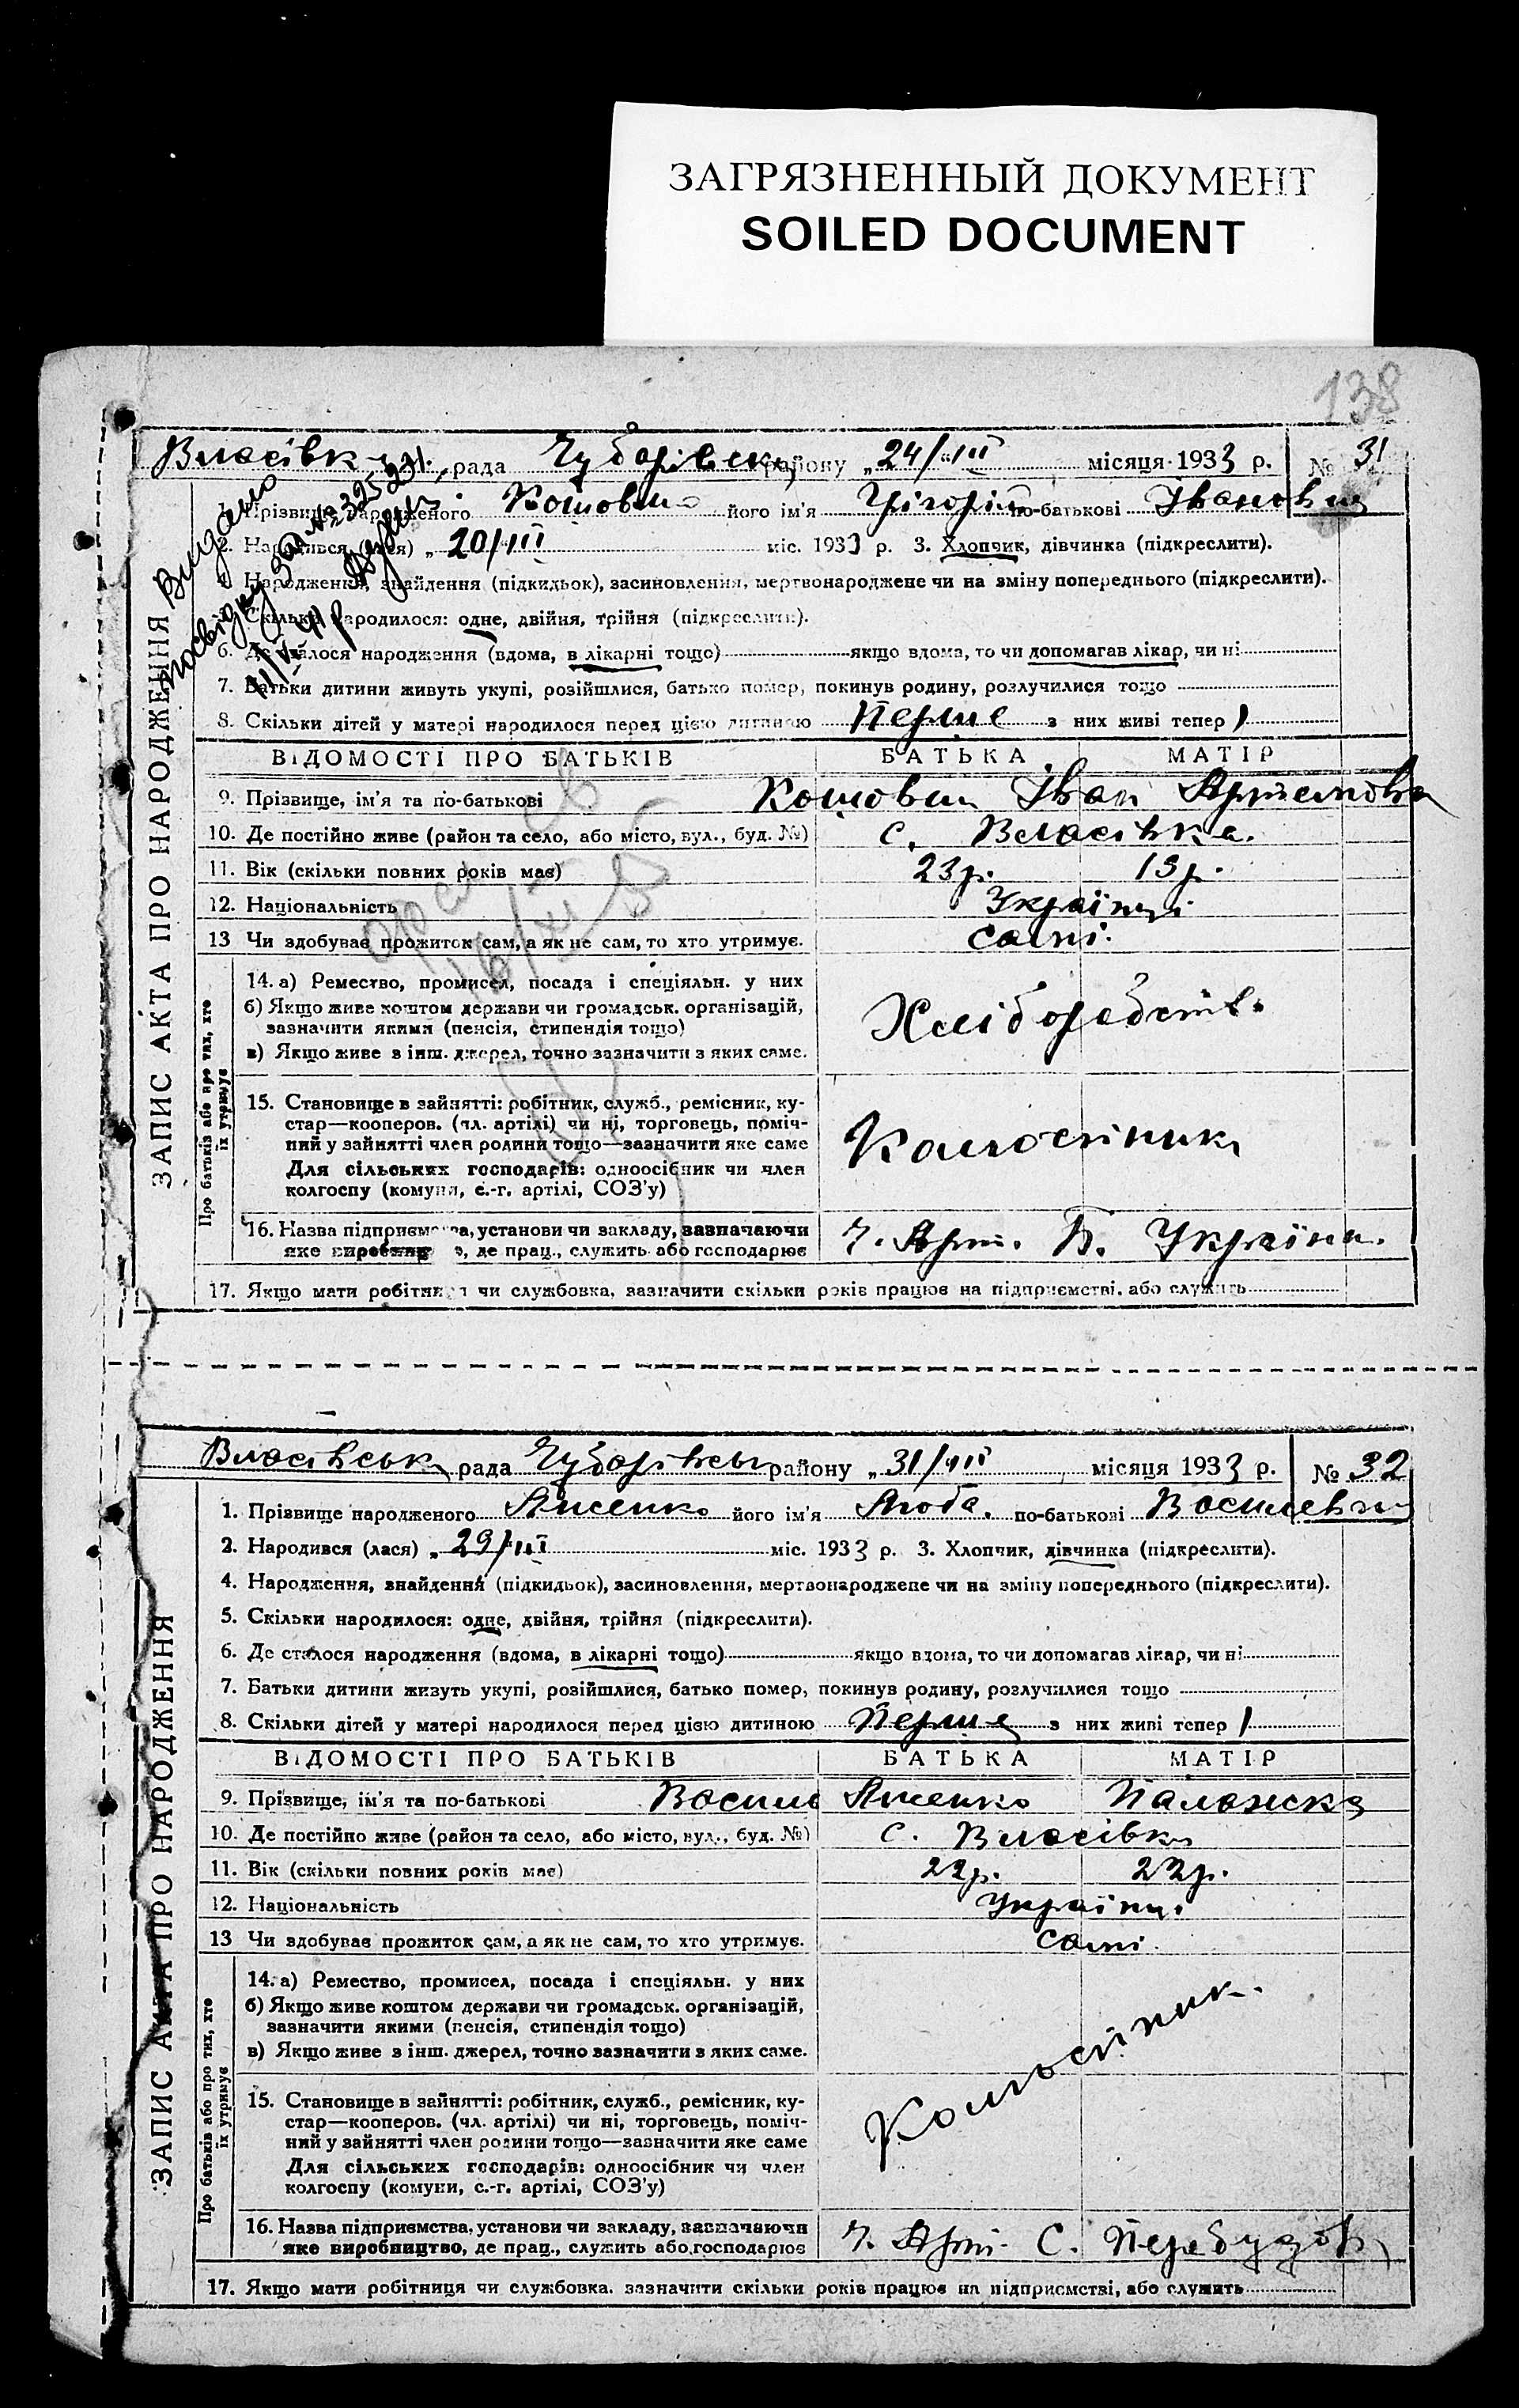 ЗАГРЯЗНЕННЫЙ ДОКУМЕНТ
SOILED DOCUMENT
138
рада району „24/III місяця 1933 р. № 31
1. Прізвище народженого його ім'я Григорій по-батькові
2. Народився (лася) „ 20/III міс. 1933 р. 3. Хлопчик, дівчинка (підкреслити).
4. Народження, знайдення (підкидьок), засиновлення, мертвонароджене чи на зміну попереднього (підкреслити).
5. Скільки народилося: одне, двійня, трійня (підкреслити).
6. Де сталося народження (вдома, в лікарні тощо) якщо вдома, то чи допомагав лікар, чи ні
7. Батьки дитини живуть укупі, розійшлися, батько помер, покинув родину, розлучилися тощо
8. Скільки дітей у матері народилося перед цією дитиною Перше з них живі тепер 1
ВІДОМОСТІ ПРО БАТЬКІВ БАТЬКА МАТІР
9. Прізвище, ім'я та по-батькові Іван
10. Де постійно живе (район та село, або місто, вул., буд. №) с. Власівка.
11. Вік (скільки повних років має) 23р. 19р.
12. Національність Українці
13 Чи здобуває прожиток сам, а як не сам, то хто утримує. самі.
14. а) Ремество, промисел, посада і спеціяльн. у них
б) Якщо живе коштом держави чи громадськ. організацій,
зазначити якими (пенсія, стипендія тощо)
в) Якщо живе з інш. джерел, точно зазначити з яких саме.
15. Становище в зайнятті: робітник, служб., ремісник, ку-
стар—кооперов. (чл. артілі) чи ні, торговець, поміч-
ний у зайнятті член родини тощо—зазначити яке саме
Для сільських господарів: одноосібник чи член
колгоспу (комуни, с.-г. артілі, СОЗ'у)
16. Назва підприємства, установи чи закладу, зазначаючи
яке виробництво, де прац., служить або господарює
17. Якщо мати робітниця чи службовка, зазначити скільки років працює на підприємстві, або служить
ЗАПИС АКТА ПРО НАРОДЖЕННЯ
Про батьків або про тих, хто
їх утримує
рада району „31/III місяця 1933 р. № 32
1. Прізвище народженого його ім'я по-батькові
2. Народився (лася) „ 29/III міс. 1933 р. 3. Хлопчик, дівчинка (підкреслити).
4. Народження, знайдення (підкидьок), засиновлення, мертвонароджене чи на зміну попереднього (підкреслити).
5. Скільки народилося: одне, двійня, трійня (підкреслити).
6. Де сталося народження (вдома, в лікарні тощо) якщо вдома, то чи допомагав лікар, чи ні
7. Батьки дитини живуть укупі, розійшлися, батько помер, покинув родину, розлучилися тощо
8. Скільки дітей у матері народилося перед цією дитиною Перше з них живі тепер 1
ВІДОМОСТІ ПРО БАТЬКІВ БАТЬКА МАТІР
9. Прізвище, ім'я та по-батькові Василь Палажка
10. Де постійно живе (район та село, або місто, вул., буд. №) с. Власівка
11. Вік (скільки повних років має) 22р. 22р.
12. Національність Українці
13 Чи здобуває прожиток сам, а як не сам, то хто утримує. самі.
14. а) Ремество, промисел, посада і спеціяльн. у них
б) Якщо живе коштом держави чи громадськ. організацій,
зазначити якими (пенсія, стипендія тощо)
в) Якщо живе з інш. джерел, точно зазначити з яких саме.
15. Становище в зайнятті: робітник, служб., ремісник, ку-
стар—кооперов. (чл. артілі) чи ні, торговець, поміч-
ний у зайнятті член родини тощо—зазначити яке саме
Для сільських господарів: одноосібник чи член
колгоспу (комуни, с.-г. артілі, СОЗ'у)
16. Назва підприємства, установи чи закладу, зазначаючи
яке виробництво, де прац., служить або господарює
17. Якщо мати робітниця чи службовка, зазначити скільки років працює на підприємстві, або служить
ЗАПИС АКТА ПРО НАРОДЖЕННЯ
Про батьків або про тих, хто
їх утримує